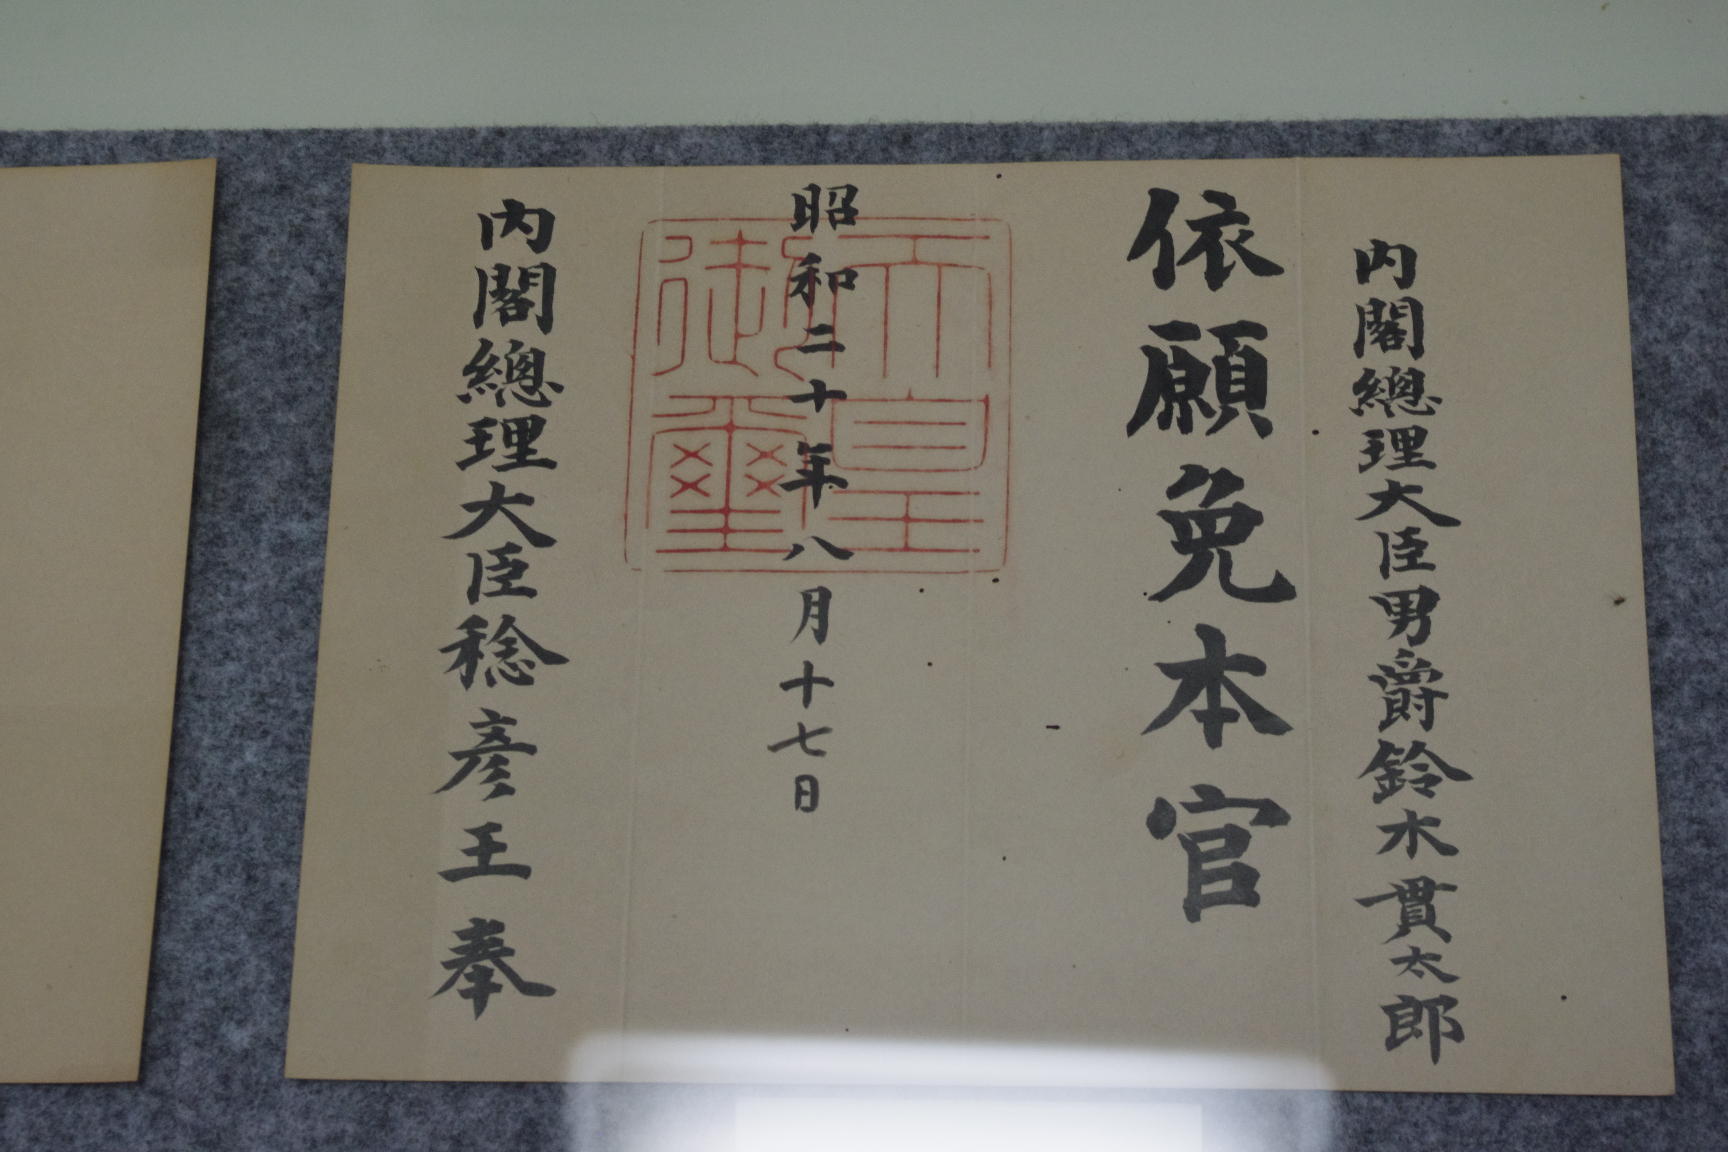 内閣總理大臣男爵鈴木貫太郎
依願免本官
昭和二十年八月十七日
天皇
御璽
内閣總理大臣稔彥王奉